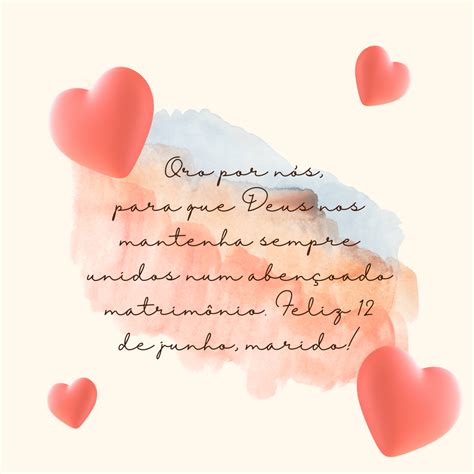 Oro por nós,
para que Deus nos
mantenha sempre
unidos num abençoado
matrimônio. Feliz 12
de junho, marido!